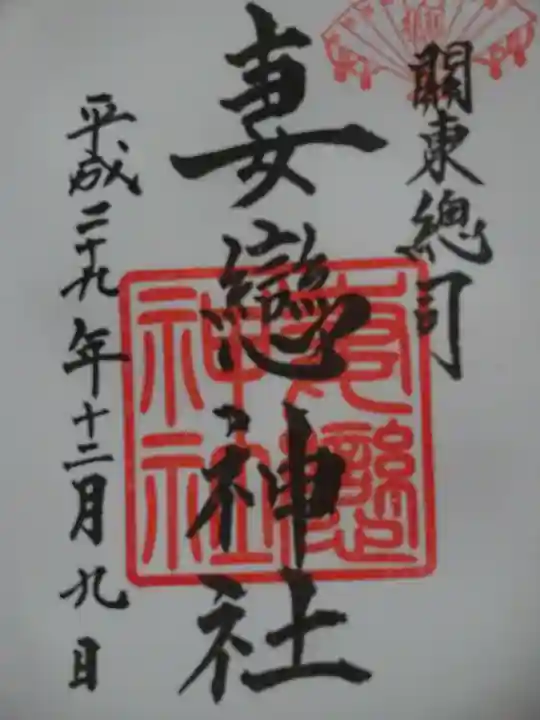 關東總司
妻戀神社
平成二十九年十二月九日
妻戀神社